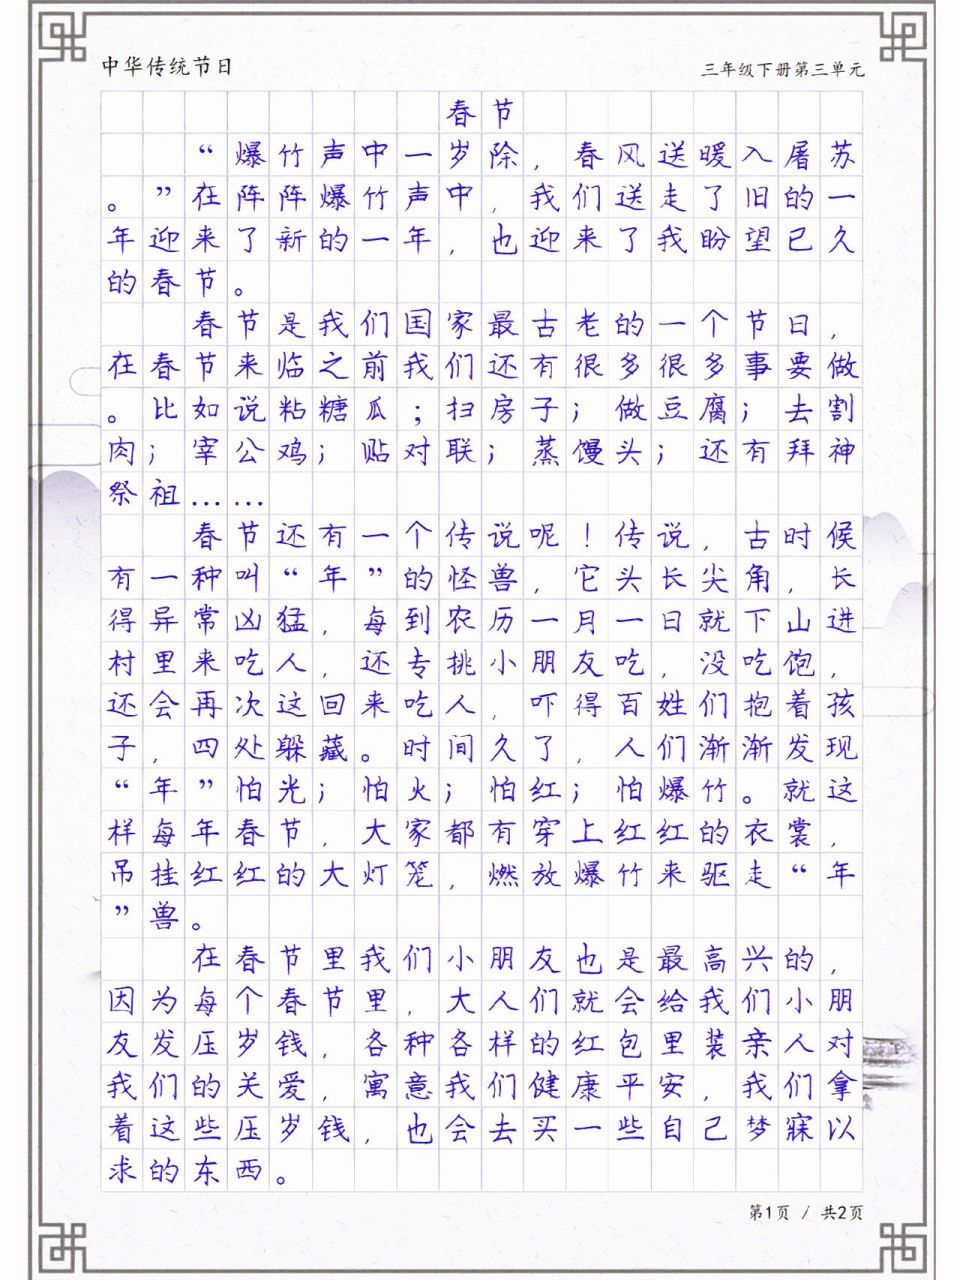 中华传统节日
三年级下册第三单元
春节
“爆竹声中一岁除，春风送暖入屠苏
。”在阵阵爆竹声中，我们送走了旧的一
年迎来了新的一年，也迎来了我盼望已久
的春节。
春节是我们国家最古老的一个节日，
在春节来临之前我们还有很多很多事要做
。比如说粘糖瓜；扫房子；做豆腐；去割
肉；宰公鸡；贴对联；蒸馒头；还有拜神
祭祖……
春节还有一个传说呢！传说，古时候
有一种叫“年”的怪兽，它头长尖角，长
得异常凶猛，每到农历一月一日就下山进
村里来吃人，还专挑小朋友吃，没吃饱，
还会再次这回来吃人，吓得百姓们抱着孩
子，四处躲藏。时间久了，人们渐渐发现
“年”怕光；怕火；怕红；怕爆竹。就这
样每年春节，大家都有穿上红红的衣裳，
吊挂红红的大灯笼，燃放爆竹来驱走“年
”兽。
在春节里我们小朋友也是最高兴的，
因为每个春节里，大人们就会给我们小朋
友发压岁钱，各种各样的红包里装亲人对
我们的关爱，寓意我们健康平安，我们拿
着这些压岁钱，也会去买一些自己梦寐以
求的东西。
第1页 / 共2页